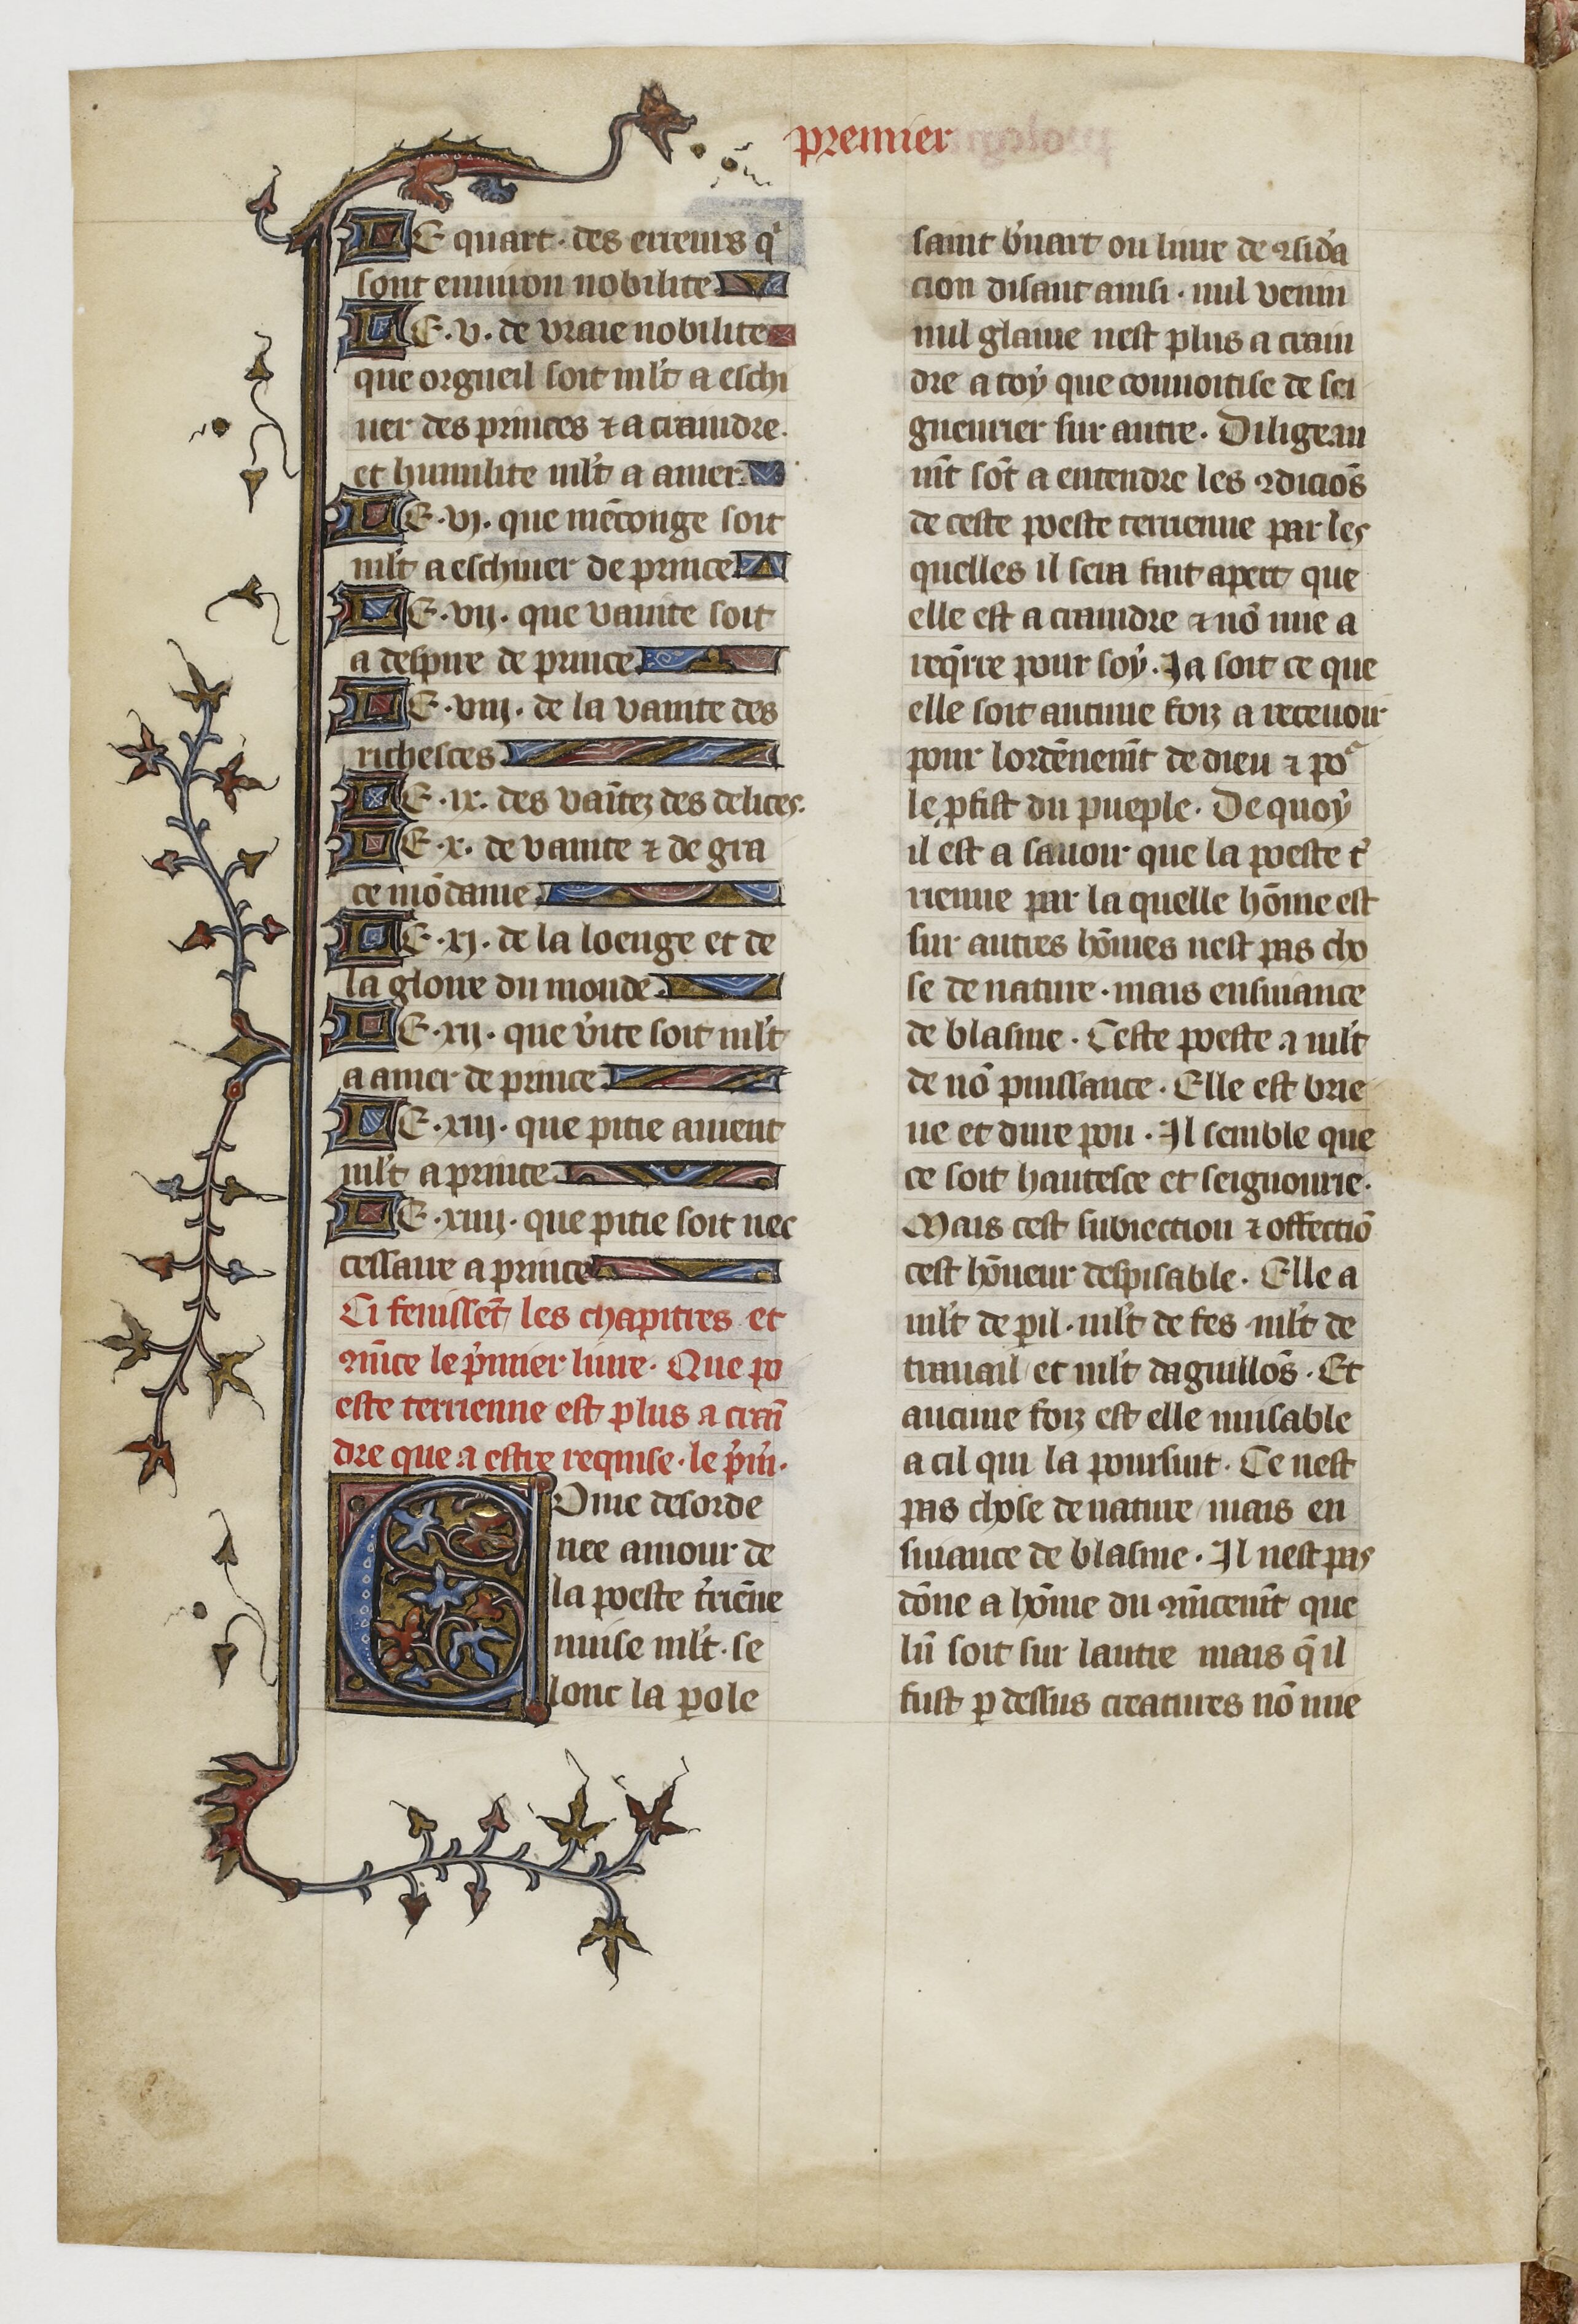 premier
LE quart· des erreurs qⁱ
sont enuiron nobilite
LE·v· de vraie nobilite
que orgueil soit ml't a eschi
uer des princes ⁊ a craindre·
et humilite ml't a amer·
LE·vj· que mēconge soit
ml't a eschiuer de prince
LE·vij· que vanite soit
a despire de prince
LE·viij· de la vanite des
richesces
LE·ix· des vaītez des delices·
LE·x· de vanite ⁊ de gra
ce mōdaine
LE·xj· de la loenge et de
la gloire du monde
LE·xij· que v'ite soit ml't
a amer de prince
LE·xiij· que pitie auient
ml't a prince
LE·xiiij· que pitie soit nec
cessaire a prince
Ci fenissēt les chapitres et
ꝯm̄ce le p'mier liure· Que po
este terrienne est plus a crai̅
dre que a estre requise· le p'm̄·
COme desorde
nee amour de
la poeste t'riēne
nuise ml't· se
lonc la parole
saint b'nart ou liure de ꝯsid'a
cion disant ainsi· nul venin
nul glaiue nest plus a crain
dre a toy que conuoitise de sei
gneurier sur autre· Diligeau
mt̄ sōt a entendre les ꝯdiciōs
de ceste poeste terrienne par les
quelles il sera fait apert que
elle est a craindre ⁊ nō mie a
req̄rre pour soy· Ja soit ce que
elle soit aucune foiz a receuoir
pour lordēnem̄t de dieu ⁊ poᶜ
le ꝓfist du pueple· De quoy
il est a sauoir que la poeste t'
rienne par la quelle hōme est
sur autres hōmes nest pas cho
se de nature· mais ensuiance
de blasme· Ceste poeste a ml't
de nō puissance· Elle est brie
ue et dure pou· Il semble que
ce soit hautesce et seignourie·
Mais cest subiection ⁊ offectiō
cest hōneur despisable· Elle a
ml't de ꝑil· ml't de fes· ml't de
trauail et ml't daguillōs· Et
aucune foiz est elle nuisable
a cil qui la poursuit· Ce nest
pas chose de nature mais en
suiance de blasme· Il nest pas
dōne a hōme du ꝯm̄cem̄t que
lū soit sur lautre mais q̄ il
fust ꝑ dessus creatures nō mie